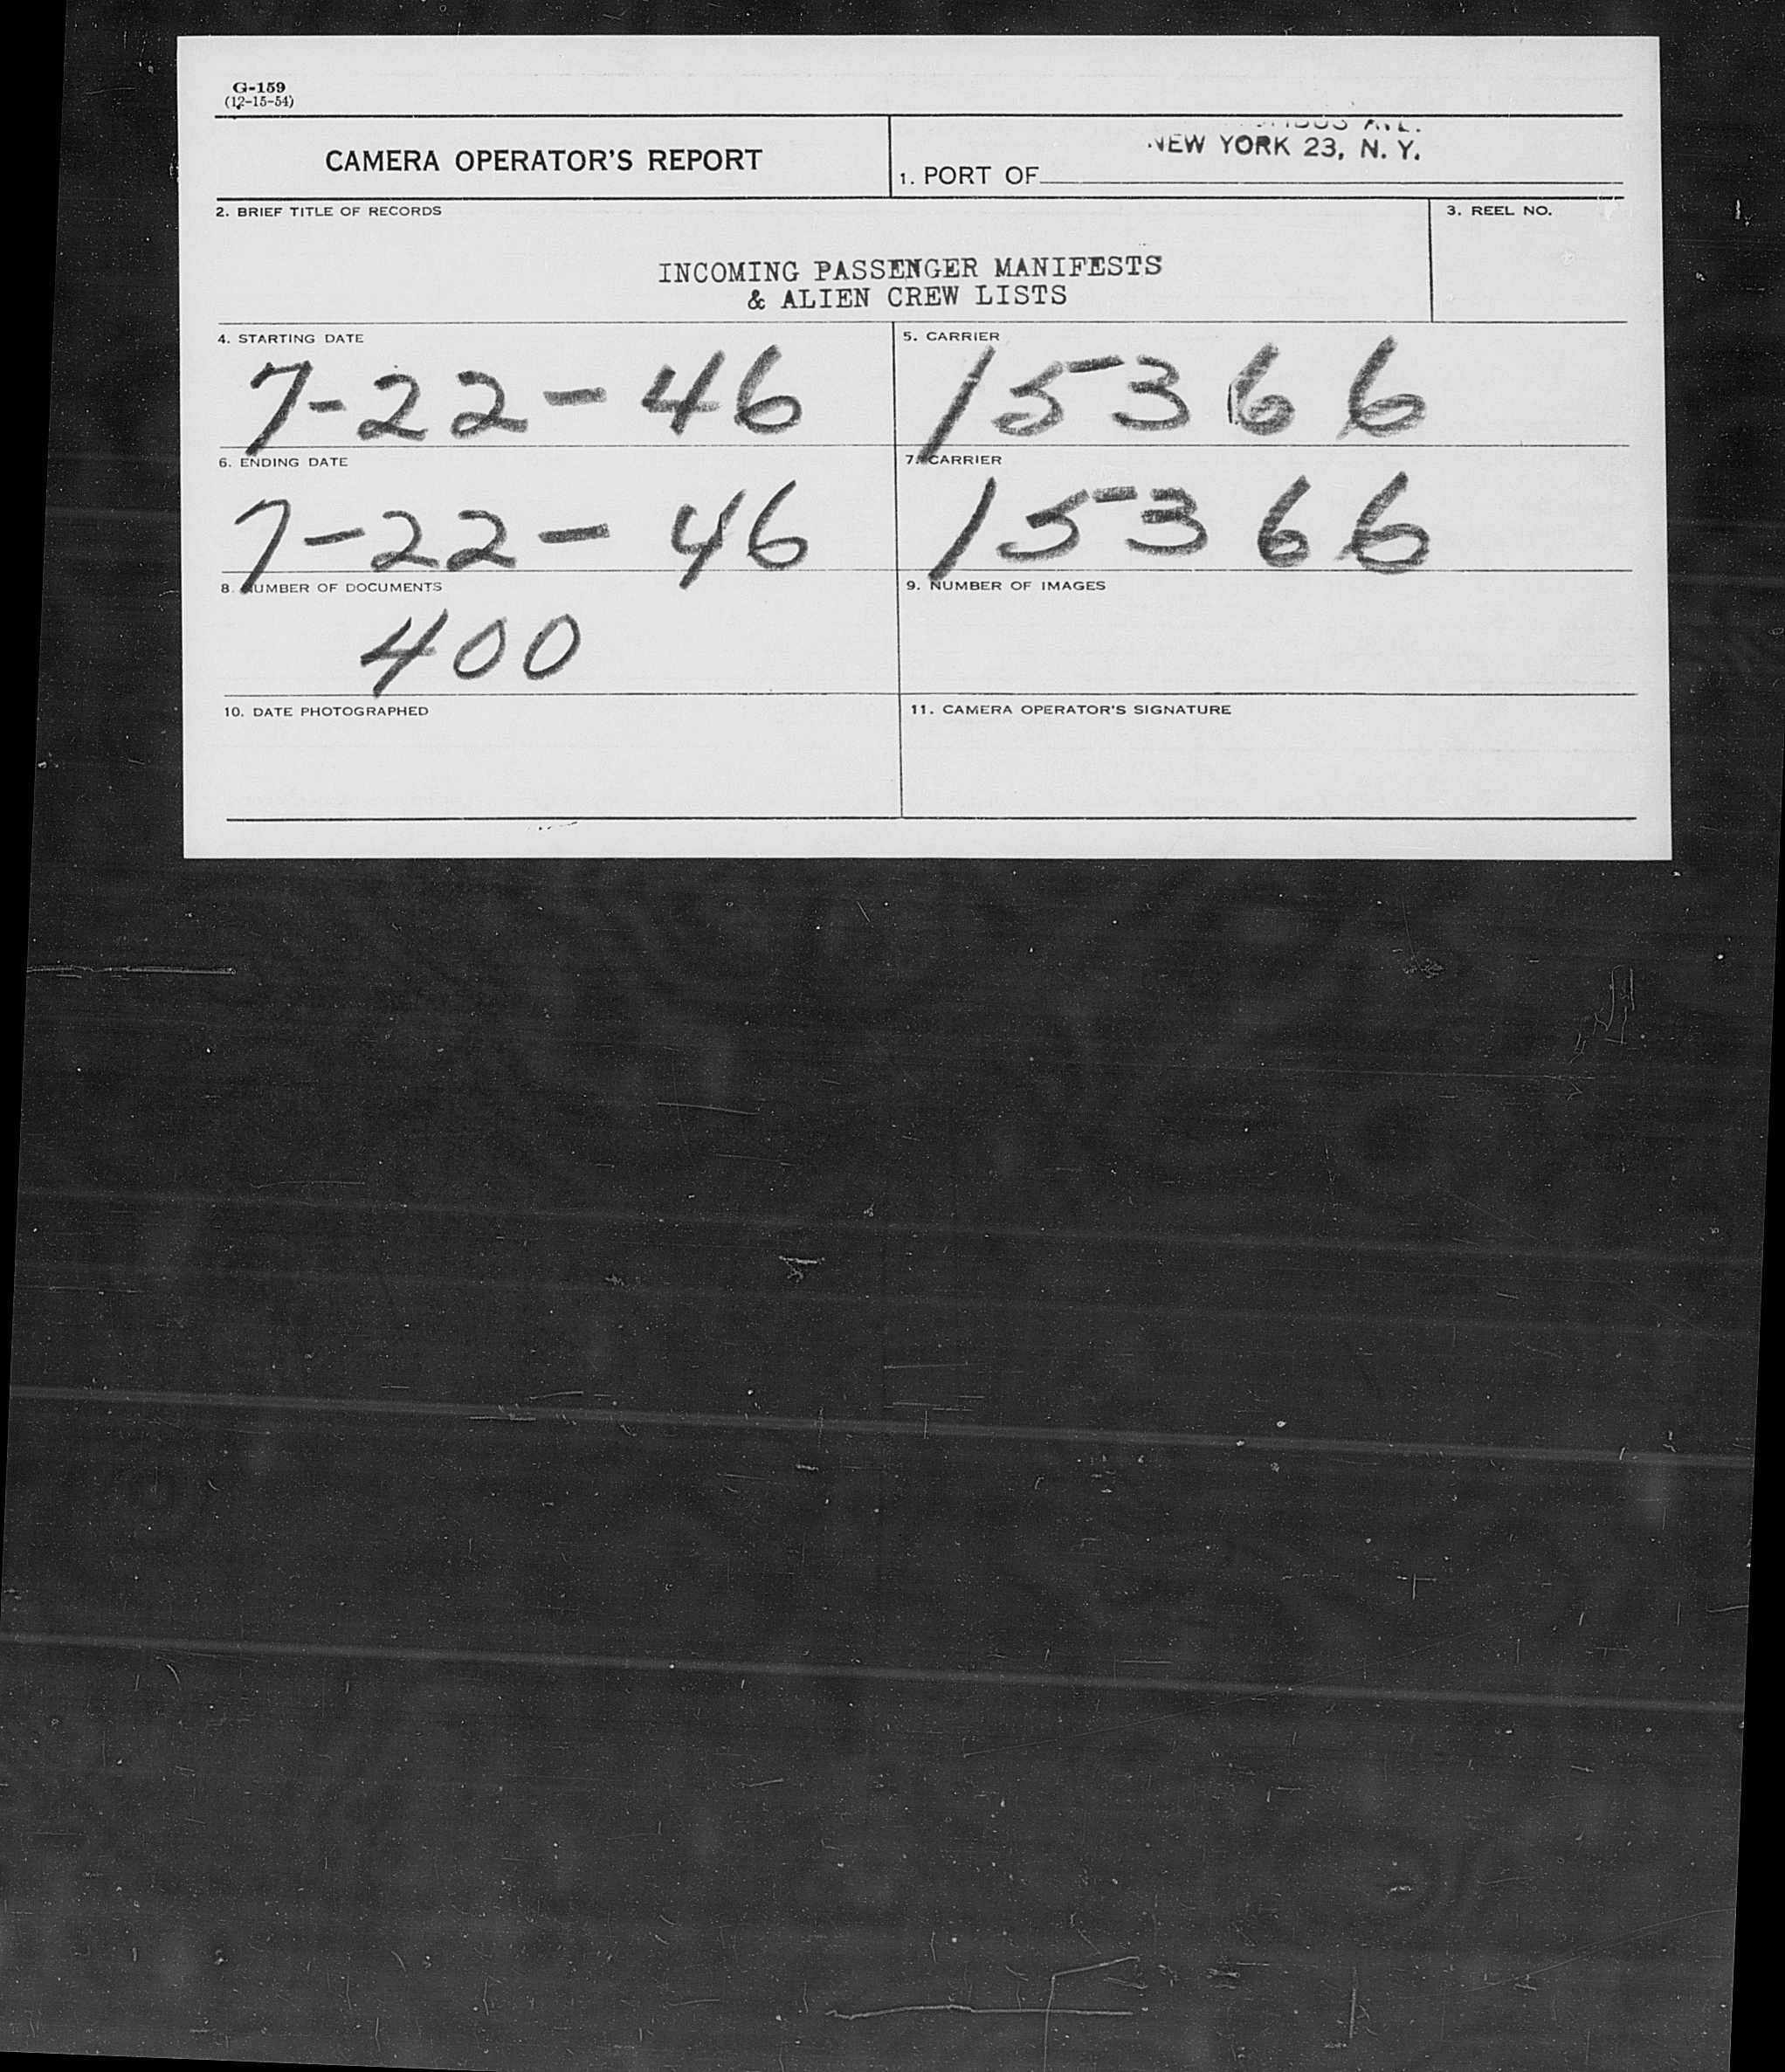 G-159
(12-15-54)
CAMERA OPERATOR'S REPORT
AVE.
NEW YORK 23, N. Y.
1. PORT OF
2. BRIEF TITLE OF RECORDS
3. REEL NO.
INCOMING PASSENGER MANIFESTS
& ALIEN CREW LISTS
4. STARTING DATE
7-22-46
5. CARRIER
15366
6. ENDING DATE
7-22-46
7. CARRIER
15366
8. NUMBER OF DOCUMENTS
400
9. NUMBER OF IMAGES
10. DATE PHOTOGRAPHED
11. CAMERA OPERATOR'S SIGNATURE